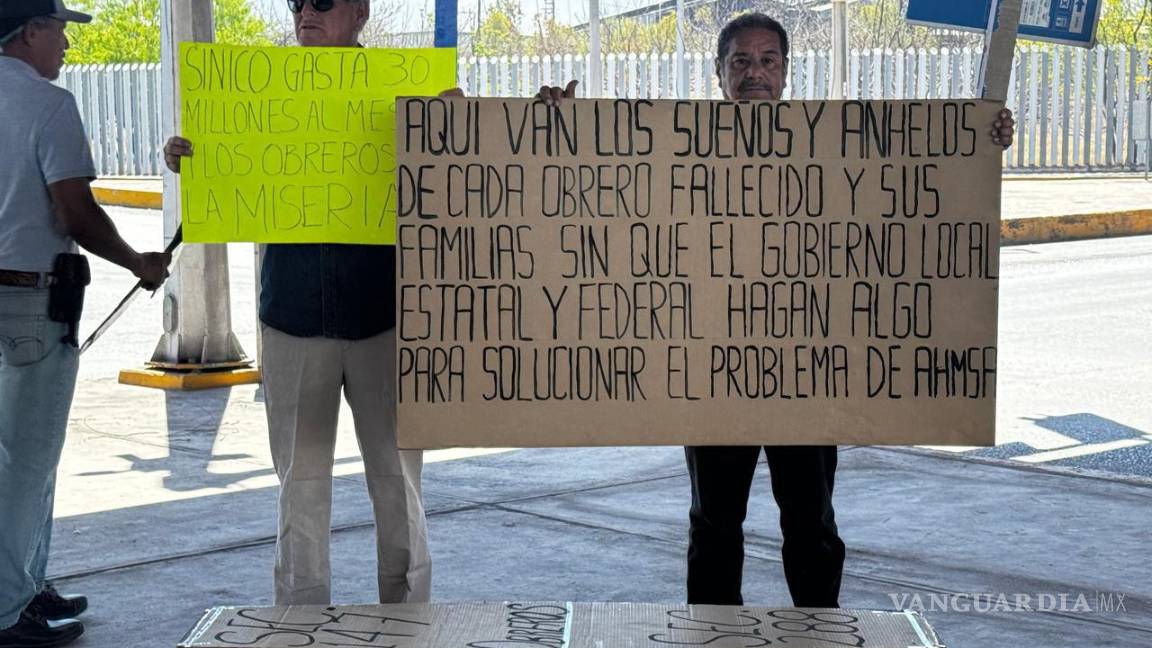 SINICO GASTA 30
MILLONES AL MES
LOS OBREROS
LA MISERIA
AQUI VAN LOS SUEÑOS Y ANHELOS
DE CADA OBRERO FALLECIDO Y SUS
FAMILIAS SIN QUE EL GOBIERNO LOCAL
ESTATAL Y FEDERAL HAGAN ALGO
PARA SOLUCIONAR EL PROBLEMA DE AHMSA
SEC.
147
OBREROS
SEC.
288
VANGUARDIA MX